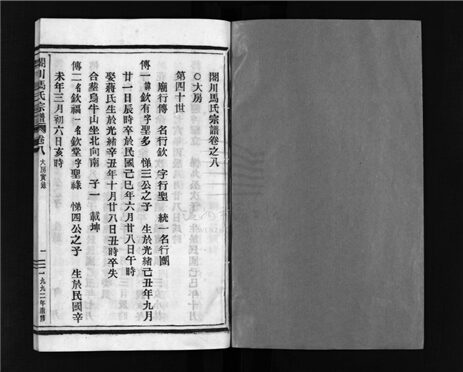 閣川馬氏宗譜卷之八
○大房
第四十世
廟行傳 名行欽 字行聖 統一名行團
傳一諱欽有字聖多 悌三公之子 生於光緒己丑年九月
廿一日辰時卒於民國己巳年六月廿八日午時
娶蔣氏生於光緒辛丑年十月廿八日丑時卒失
合塟烏牛山坐北向南 子一 載坤
傳二名欽福一名欽堂字聖祿 悌四公之子 生於民國辛
未年三月初六日亥時
閣川馬氏宗譜
卷八
大房實錄
一
一九九二年重修